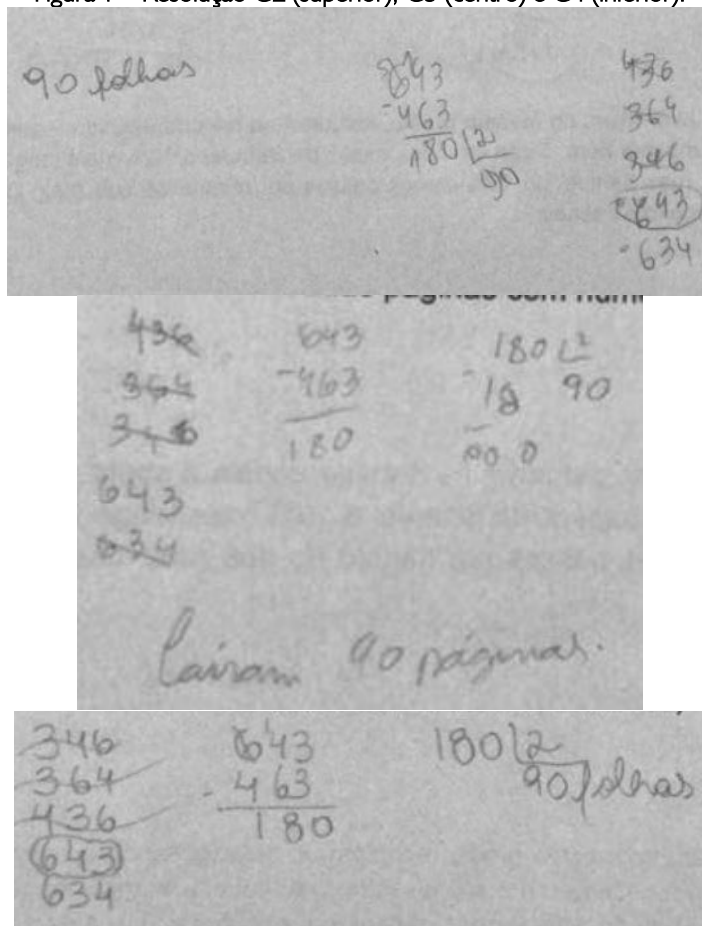 Figura 1 – Resolução G2 (superior), G3 (centro) e G4 (inferior).
90 folhas
643
-463
180 2
90
436
364
346
643
-634
páginas com núm
436
364
346
643
634
643
-463
180
180 2
-18 90
00 0
Cairam 90 páginas.
346
364
436
643
634
643
-463
180
180 2
90 folhas